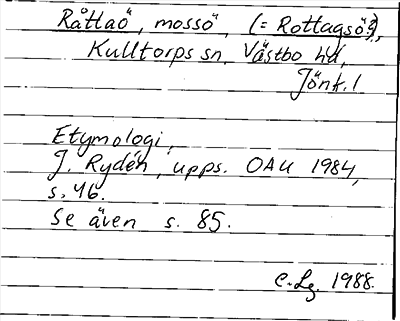 Råttaö, mossö, (= Rottagsö?),
Kulltorps sn, Västbo hd,
Jönk. l
Etymologi,
J. Rydén, upps. OAU 1984,
s. 46.
Se även s. 85.
C. Lg. 1988.